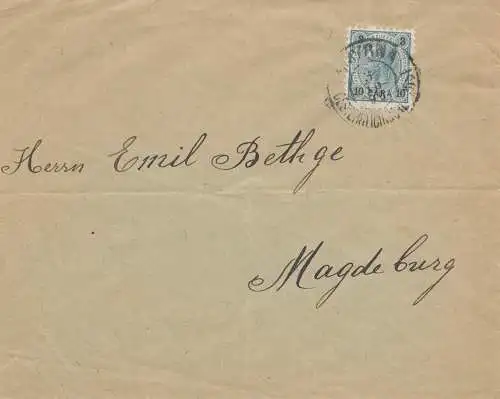 3 3
10 PARA 10
Herrn Emil Bethge
Magdeburg